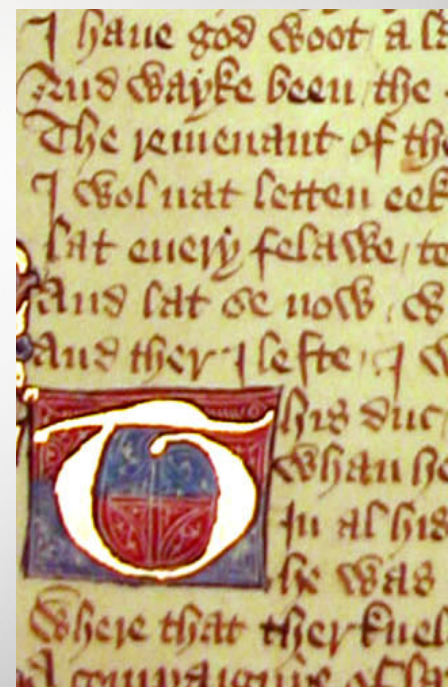 I haue god woot a la
And wayke been the
The remenant of the
I wol nat letten eek
Lat euery felawe te
And lat se now w
And ther I lefte I w
This duc
Whan he
In al his
he was
Where that ther knel
A compaignye of la